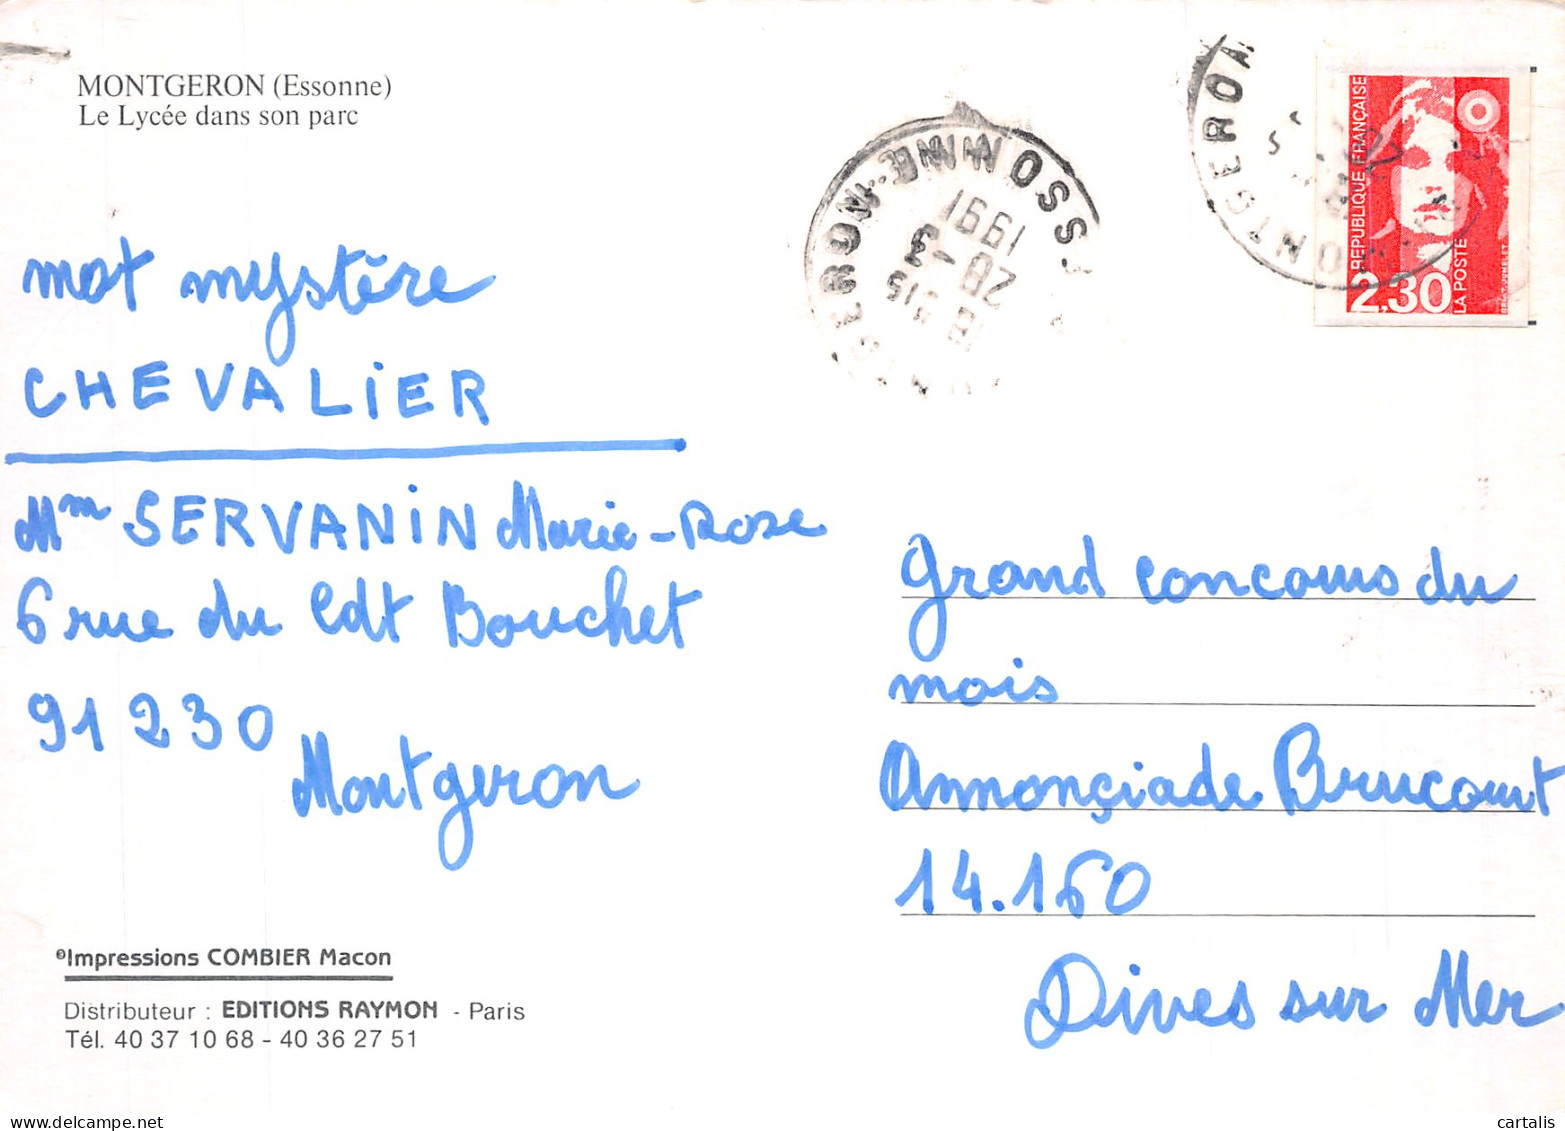 MONTGERON (Essonne)
Le Lycée dans son parc
mot mystère
CHEVALIER
Mm SERVANIN Marie-Rose
6 rue du Cdt Bouchet
91 230
Montgeron
Impressions COMBIER Macon
Distributeur : EDITIONS RAYMON - Paris
Tél. 40 37 10 68 - 40 36 27 51
MONTGERON
ESSONNE
18 H 15
28 -3
1991
REPUBLIQUE FRANÇAISE
2,30
LA POSTE
Grand concours du
mois
Annonçiade Brucourt
14.160
Dives sur Mer
cartalis